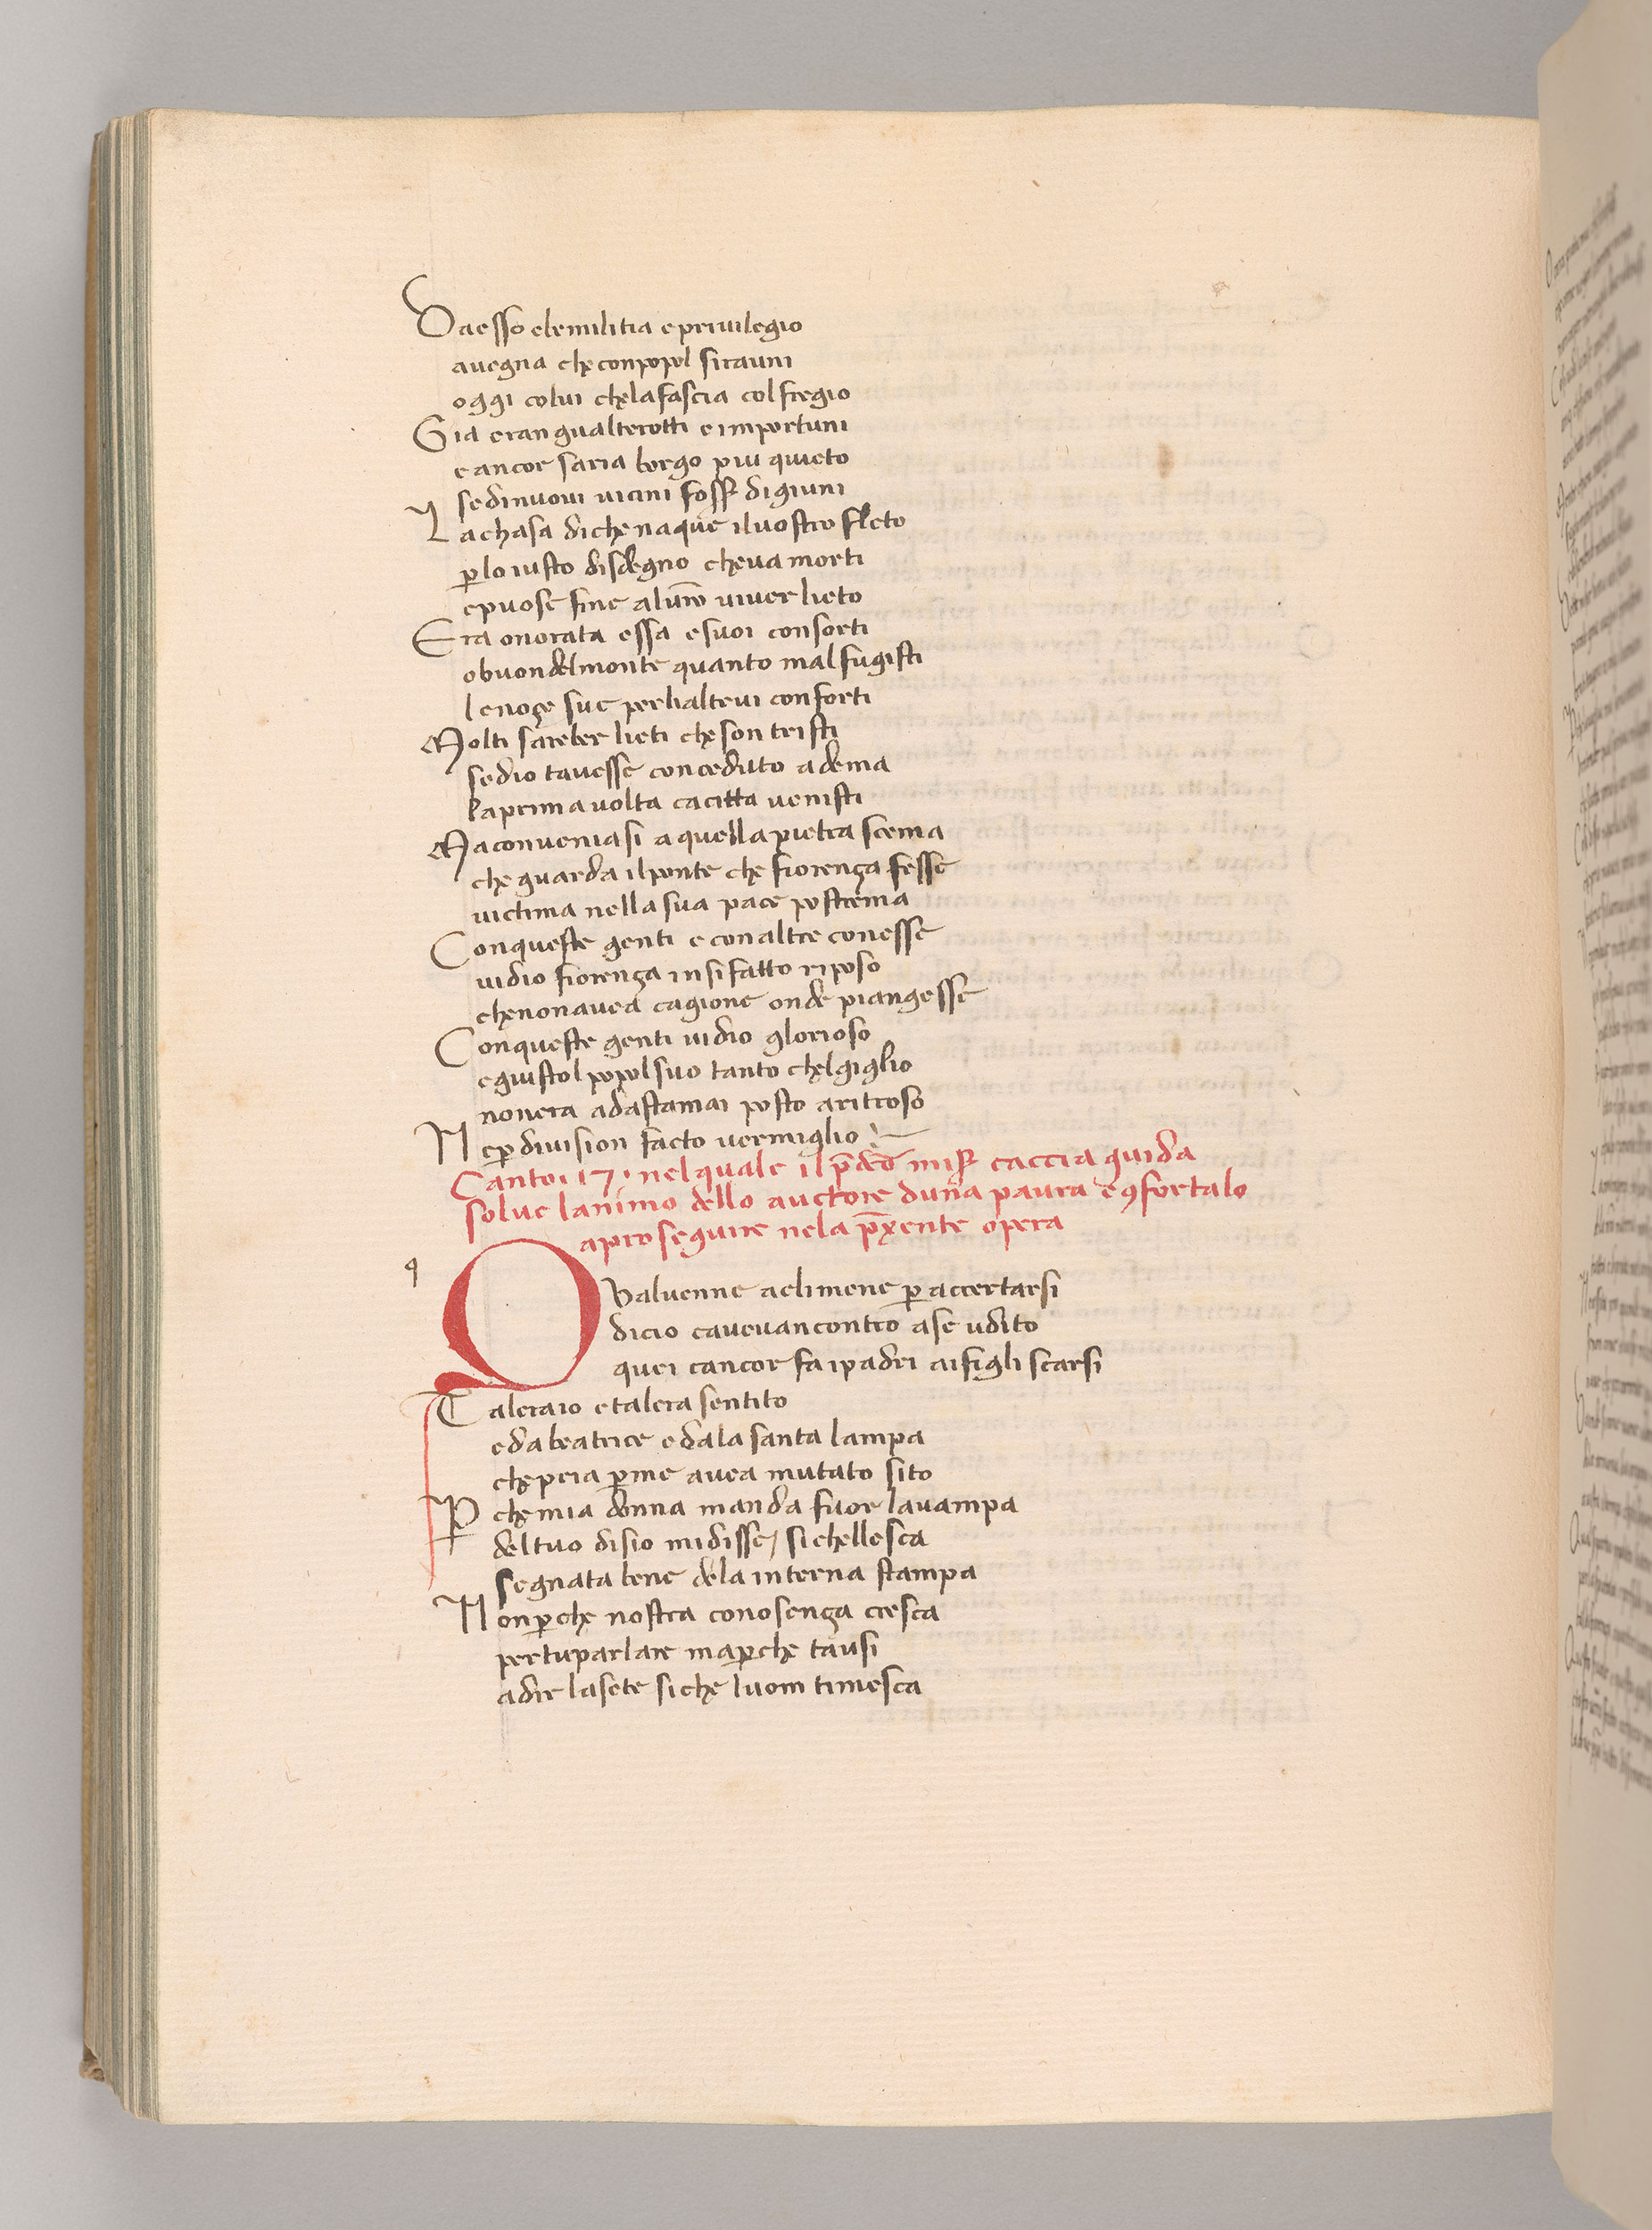 Da esso ebe militia e privilegio
avegna che con popol si rauni
oggi colui che la fascia col fregio
Gia eran gualterotti e importuni
e ancor saria borgo piu quieto
se di nuovi vicini foss̄ digiuni
La chasa di che naque il vostro fleto
ꝑ lo iusto disdegno che va morti
e puose fine al vr̄o viver lieto
Era onorata essa e suoi consorti
o buondelmonte quanto mal fugisti
le noçe sue per li altrui conforti
Molti sareber lieti che son tristi
se dio tavesse conceduto ad ema
la prima volta ca citta venisti
Ma conveniasi a quella pietra scema
che guarda il ponte che fiorença fesse
victima nella sua pace postrema
Con queste genti e con altre con esse
vidio fiorença in si fatto riposo
che non avea cagione onde piangesse
Con queste genti vidio glorioso
e giusto l popol suo tanto chel giglio
non era ad asta mai posto aritroso
Ne ꝑ division facto vermiglio
Canto .17. nel quale il p̄dc̄o miss̄ caccia guida
solve lanimo dello auctore duna paura e ꝯfortalo
a proseguire ne la p̄xente opera
q
Qual venne a climene ꝑ accertarsi
di cio cavevan contro a se udito
quei cancor fa i padri ai figli scarsi
Tal era io e tal era sentito
e da beatrice e da la santa lampa
che pria ꝑ me avea mutato sito
Ꝑ che mia donna manda fuor la vampa
del tuo disio mi disse / si chellesca
segnata bene de la interna stampa
Non ꝑche nostra conosença cresca
per tu parlare ma ꝑche tausi
a dir la sete si che luom ti mesca